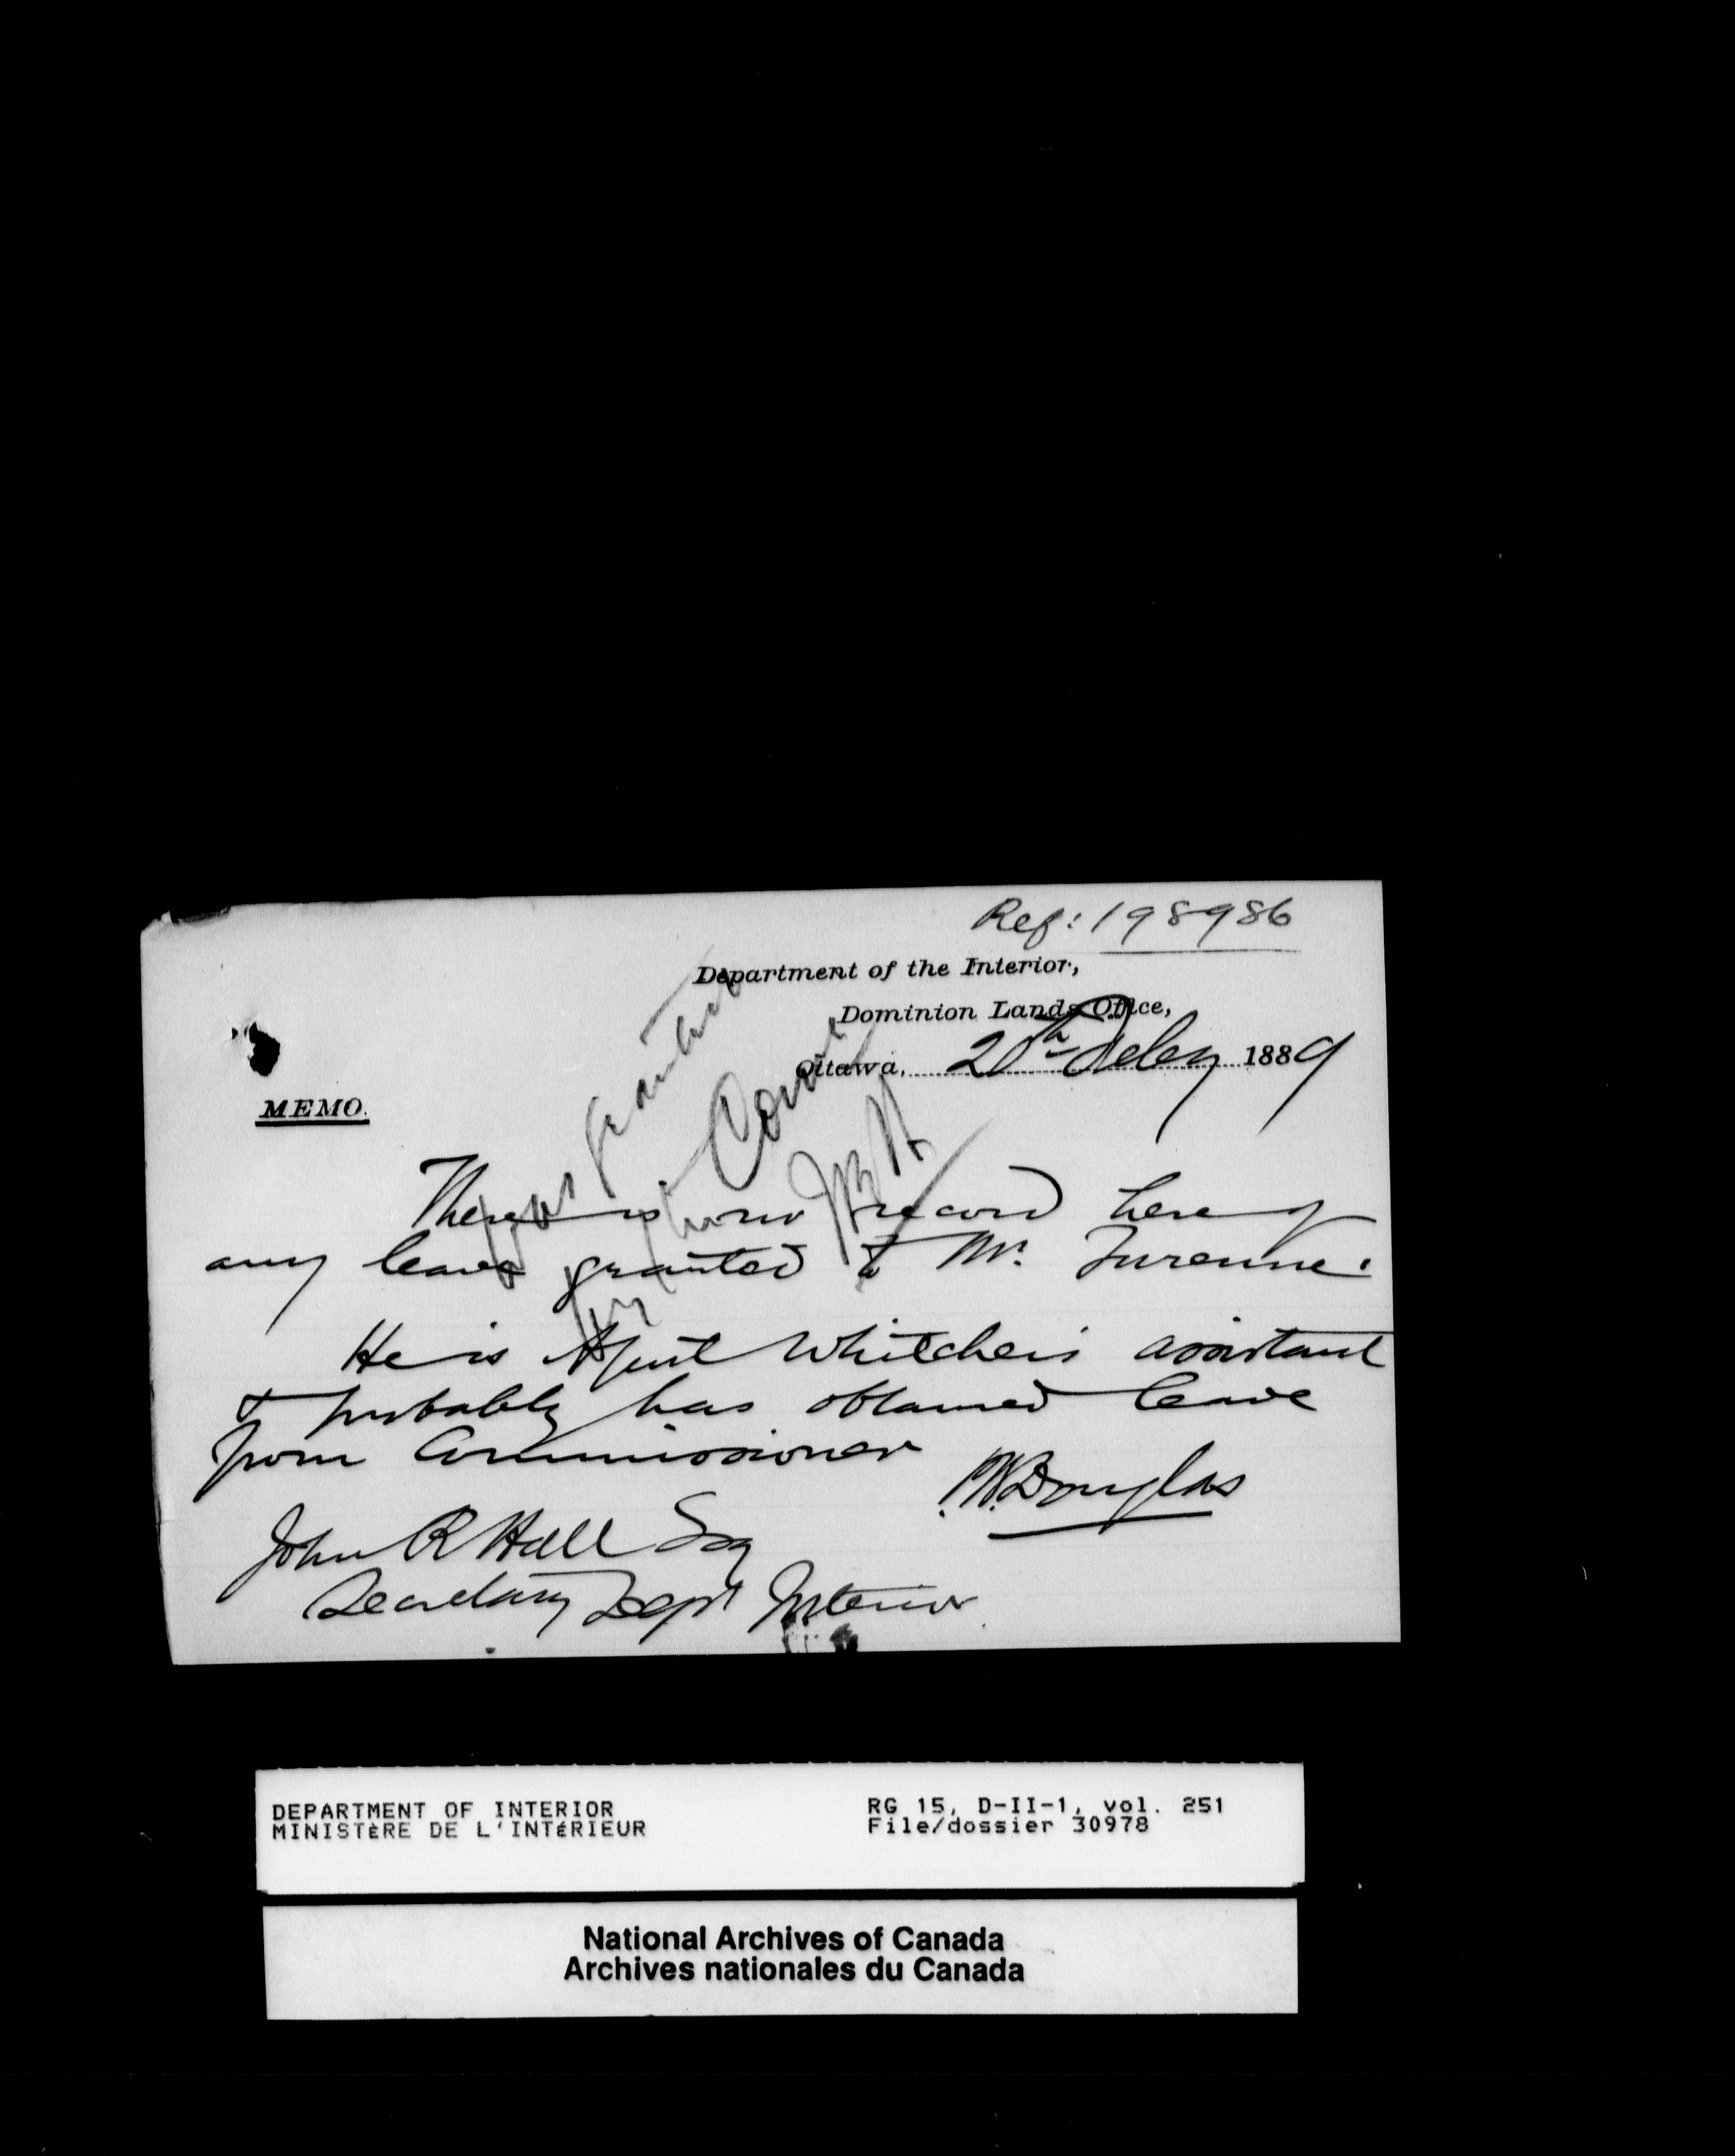 Ref: 198986
Department of the Interior,
Dominion Lands Office,
Ottawa, 20th Feby 1889
MEMO.
Was granted
by the Comr
JRH
There is now record here of
any leave granted to Mr. Turenne.
He is Agent Whitcher's assistant
& probably has obtained leave
from Commissioner
W. Douglas
John R Hall Esq
Secretary Dept Interior
DEPARTMENT OF INTERIOR
MINISTÈRE DE L'INTÉRIEUR
RG 15, D-II-1, vol. 251
File/dossier 30978
National Archives of Canada
Archives nationales du Canada